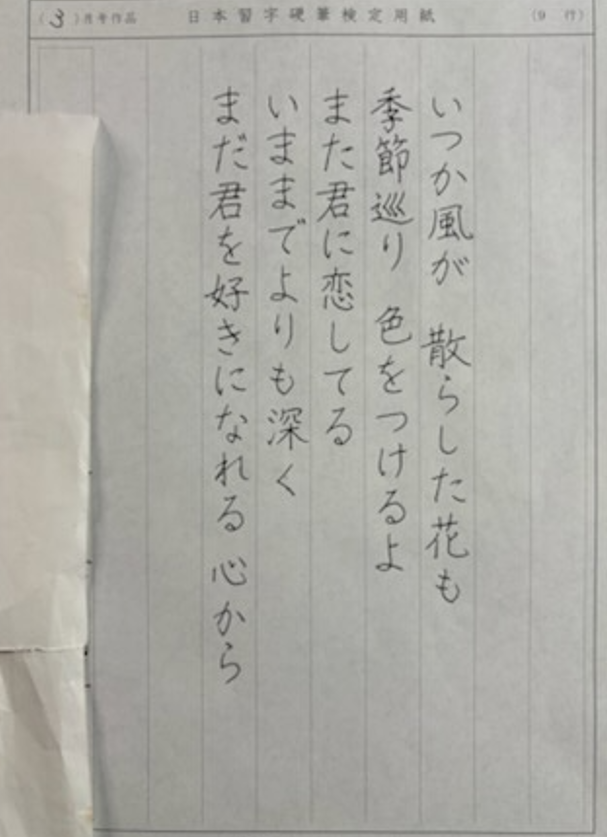 (3)月考作品 日本習字硬筆検定用紙 (9 行)
いつか風が 散らした花も
季節巡り 色をつけるよ
また君に恋してる
いままでよりも深く
まだ君を好きになれる 心から